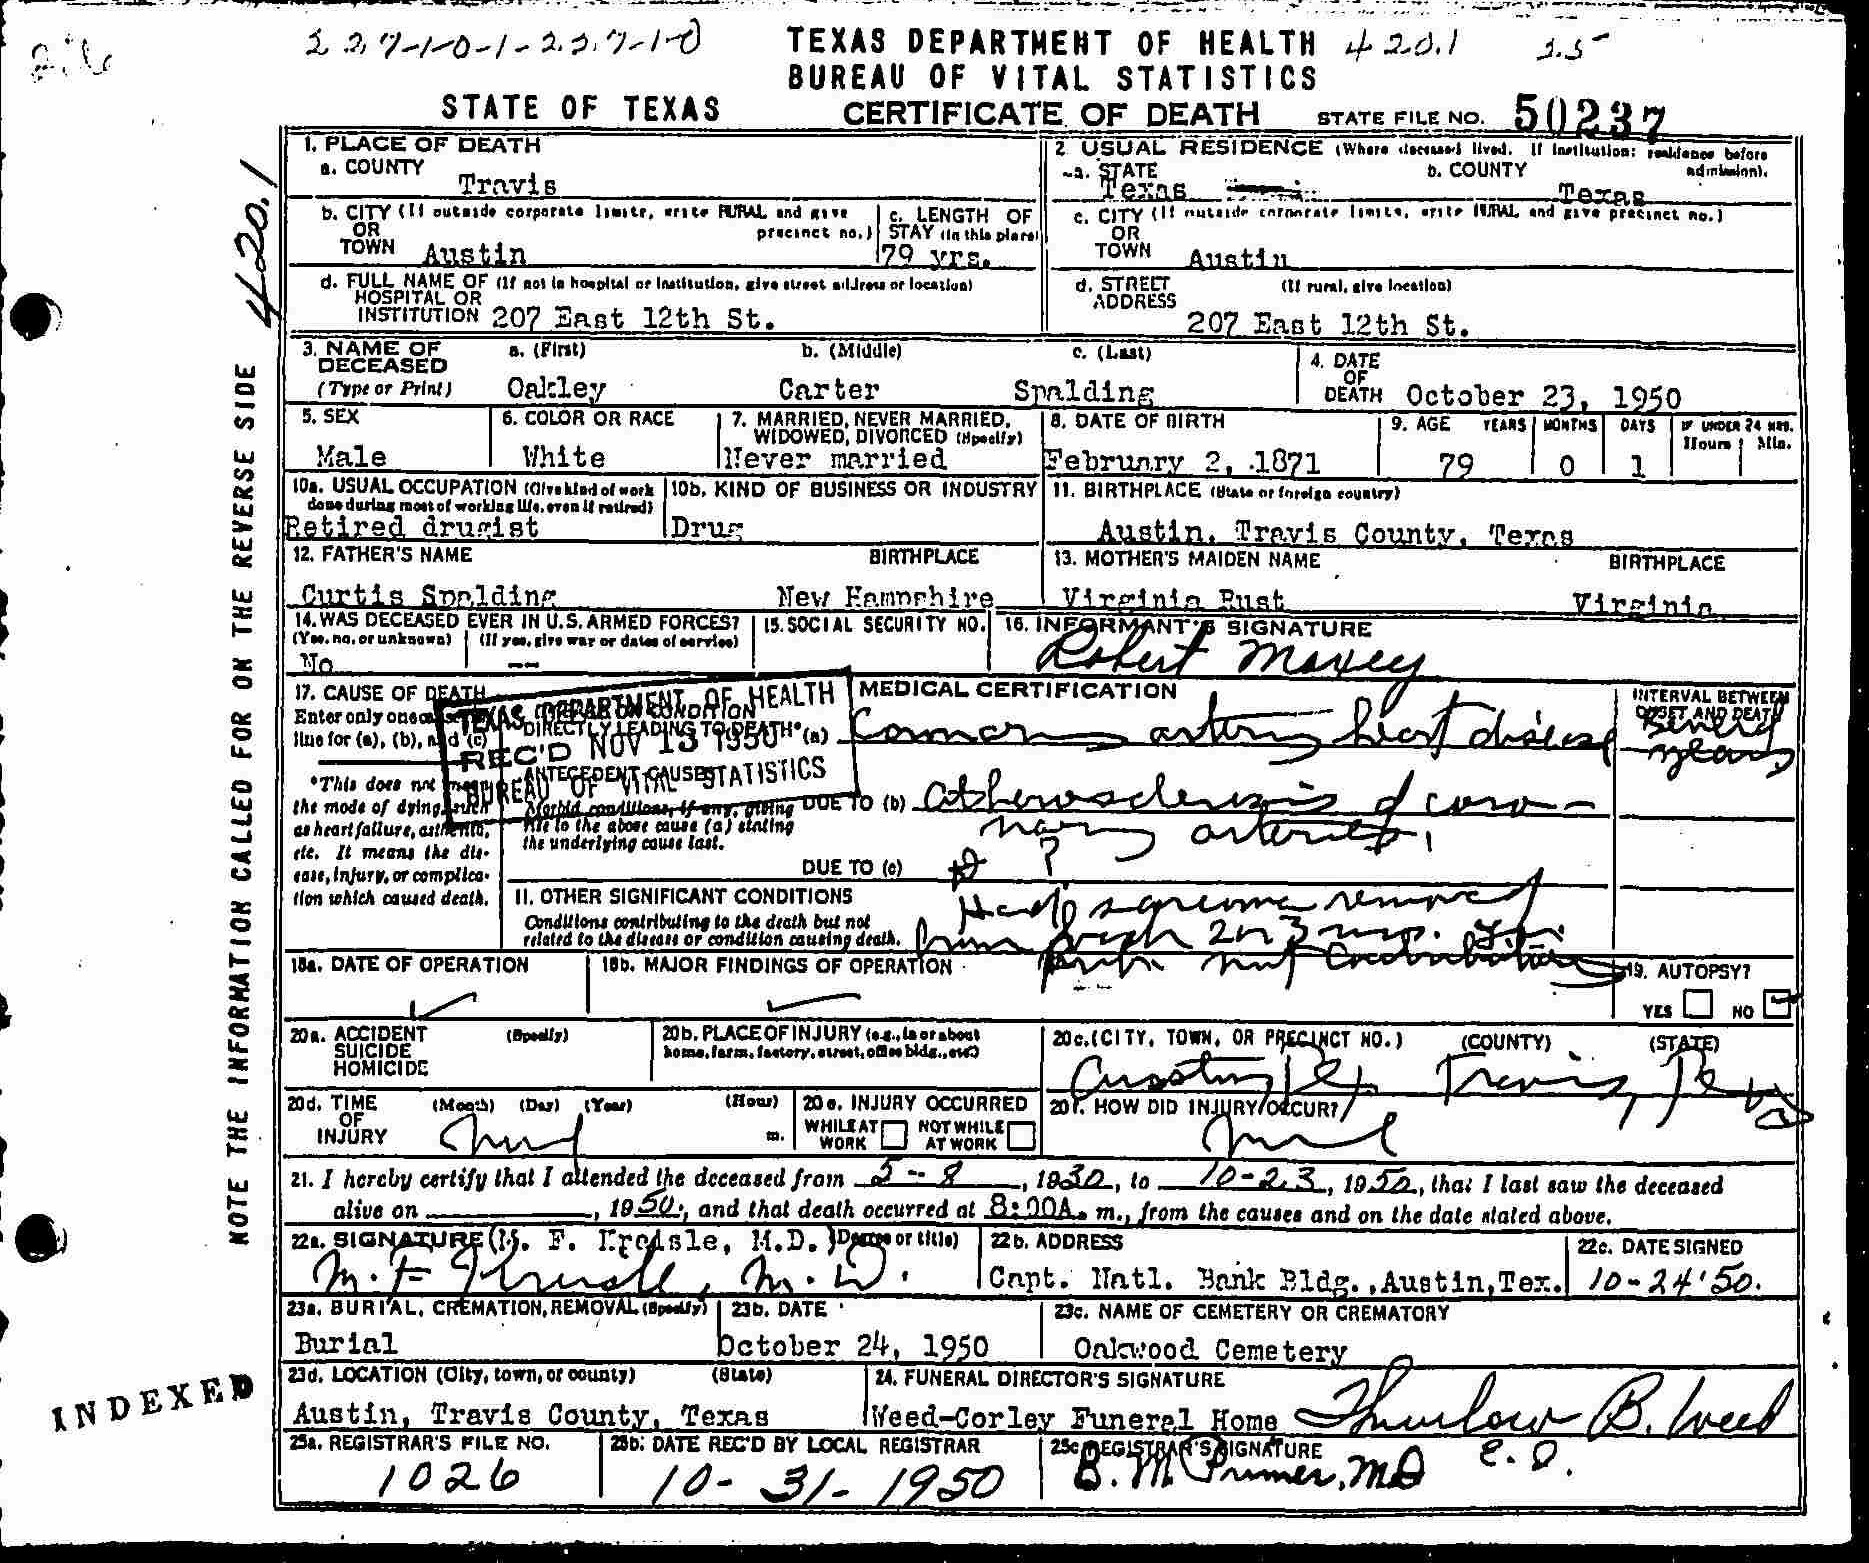 227-1-0-1-227-1-0
TEXAS DEPARTMENT OF HEALTH
4201
BUREAU OF VITAL STATISTICS
STATE OF TEXAS
CERTIFICATE OF DEATH
STATE FILE NO. 50237
NOTE THE INFORMATION CALLED FOR ON THE REVERSE SIDE
420.1
1. PLACE OF DEATH
a. COUNTY
Travis
2 USUAL RESIDENCE (Where deceased lived. If institution: residence before admission).
a. STATE
Texas
b. COUNTY
Texas
b. CITY (If outside corporate limits, write RURAL and give precinct no.)
OR
TOWN Austin
c. LENGTH OF STAY (in this place)
79 yrs.
c. CITY (If outside corporate limits, write RURAL and give precinct no.)
OR
TOWN Austin
d. FULL NAME OF (If not in hospital or institution, give street address or location)
HOSPITAL OR
INSTITUTION 207 East 12th St.
d. STREET ADDRESS
(If rural, give location)
207 East 12th St.
3. NAME OF DECEASED
(Type or Print)
a. (First)
Oakley
b. (Middle)
Carter
c. (Last)
Spalding
4. DATE OF DEATH October 23, 1950
5. SEX
Male
6. COLOR OR RACE
White
7. MARRIED, NEVER MARRIED, WIDOWED, DIVORCED (Specify)
Never married
8. DATE OF BIRTH
February 2, 1871
9. AGE YEARS MONTHS DAYS IF UNDER 24 HRS. Hours Min.
79 0 1
10a. USUAL OCCUPATION (Give kind of work done during most of working life, even if retired)
Retired drugist
10b. KIND OF BUSINESS OR INDUSTRY
Drug
11. BIRTHPLACE (State or foreign country)
Austin, Travis County, Texas
12. FATHER'S NAME
Curtis Spalding
BIRTHPLACE
New Hampshire
13. MOTHER'S MAIDEN NAME
Virginia Rust
BIRTHPLACE
Virginia
14. WAS DECEASED EVER IN U.S. ARMED FORCES?
(Yes, no, or unknown) (If yes, give war or dates of service)
No --
15. SOCIAL SECURITY NO.
16. INFORMANT'S SIGNATURE
Robert Maxey
17. CAUSE OF DEATH
Enter only one cause per line for (a), (b), and (c)
*This does not mean the mode of dying, such as heart failure, asthenia, etc. It means the disease, injury, or complication which caused death.
TEXAS DEPARTMENT OF HEALTH
REC'D NOV 13 1950
BUREAU OF VITAL STATISTICS
MEDICAL CERTIFICATION
CONDITION DIRECTLY LEADING TO DEATH* (a) Coronary artery heart disease
INTERVAL BETWEEN ONSET AND DEATH
Several years
ANTECEDENT CAUSES
Morbid conditions, if any, giving rise to the above cause (a) stating the underlying cause last.
DUE TO (b) atherosclerosis of coronary arteries
DUE TO (c) ?
11. OTHER SIGNIFICANT CONDITIONS
Conditions contributing to the death but not related to the disease or condition causing death.
Had sarcoma removed
from 2 or 3 mos.
not contributory
18a. DATE OF OPERATION
18b. MAJOR FINDINGS OF OPERATION
19. AUTOPSY?
YES NO
20a. ACCIDENT SUICIDE HOMICIDE (Specify)
20b. PLACE OF INJURY (e.g., in or about home, farm, factory, street, office bldg., etc.)
20c. (CITY, TOWN, OR PRECINCT NO.) (COUNTY) (STATE)
Austin Travis, Texas
20d. TIME OF INJURY (Month) (Day) (Year) (Hour) m.
20e. INJURY OCCURRED
WHILE AT WORK NOT WHILE AT WORK
20f. HOW DID INJURY OCCUR?
21. I hereby certify that I attended the deceased from 5-8, 1930, to 10-23, 1950, that I last saw the deceased
alive on , 1950, and that death occurred at 8:00A. m., from the causes and on the date stated above.
22a. SIGNATURE (M. F. Kreisle, M.D.) (Degree or title)
M. F. Kreisle, M.D.
22b. ADDRESS
Capt. Natl. Bank Bldg., Austin, Tex.
22c. DATE SIGNED
10-24'50.
23a. BURIAL, CREMATION, REMOVAL (Specify)
Burial
23b. DATE
October 24, 1950
23c. NAME OF CEMETERY OR CREMATORY
Oakwood Cemetery
23d. LOCATION (City, town, or county) (State)
Austin, Travis County, Texas
24. FUNERAL DIRECTOR'S SIGNATURE
Weed-Corley Funeral Home Thurlow B. Weed
25a. REGISTRAR'S FILE NO.
1026
25b. DATE REC'D BY LOCAL REGISTRAR
10-31-1950
25c REGISTRAR'S SIGNATURE
B. M. Primer, MD
INDEXED